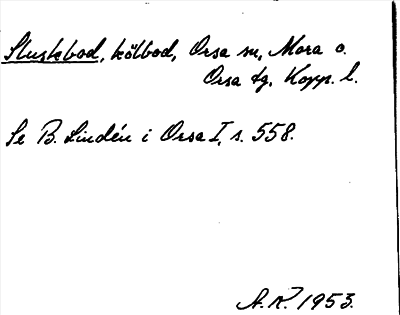 Sluskbod, köttbod, Orsa sn, Mora o.
Orsa tg, Kopp. l.
Se B. Lindén i Orsa I, s. 558.
A.K. 1953.